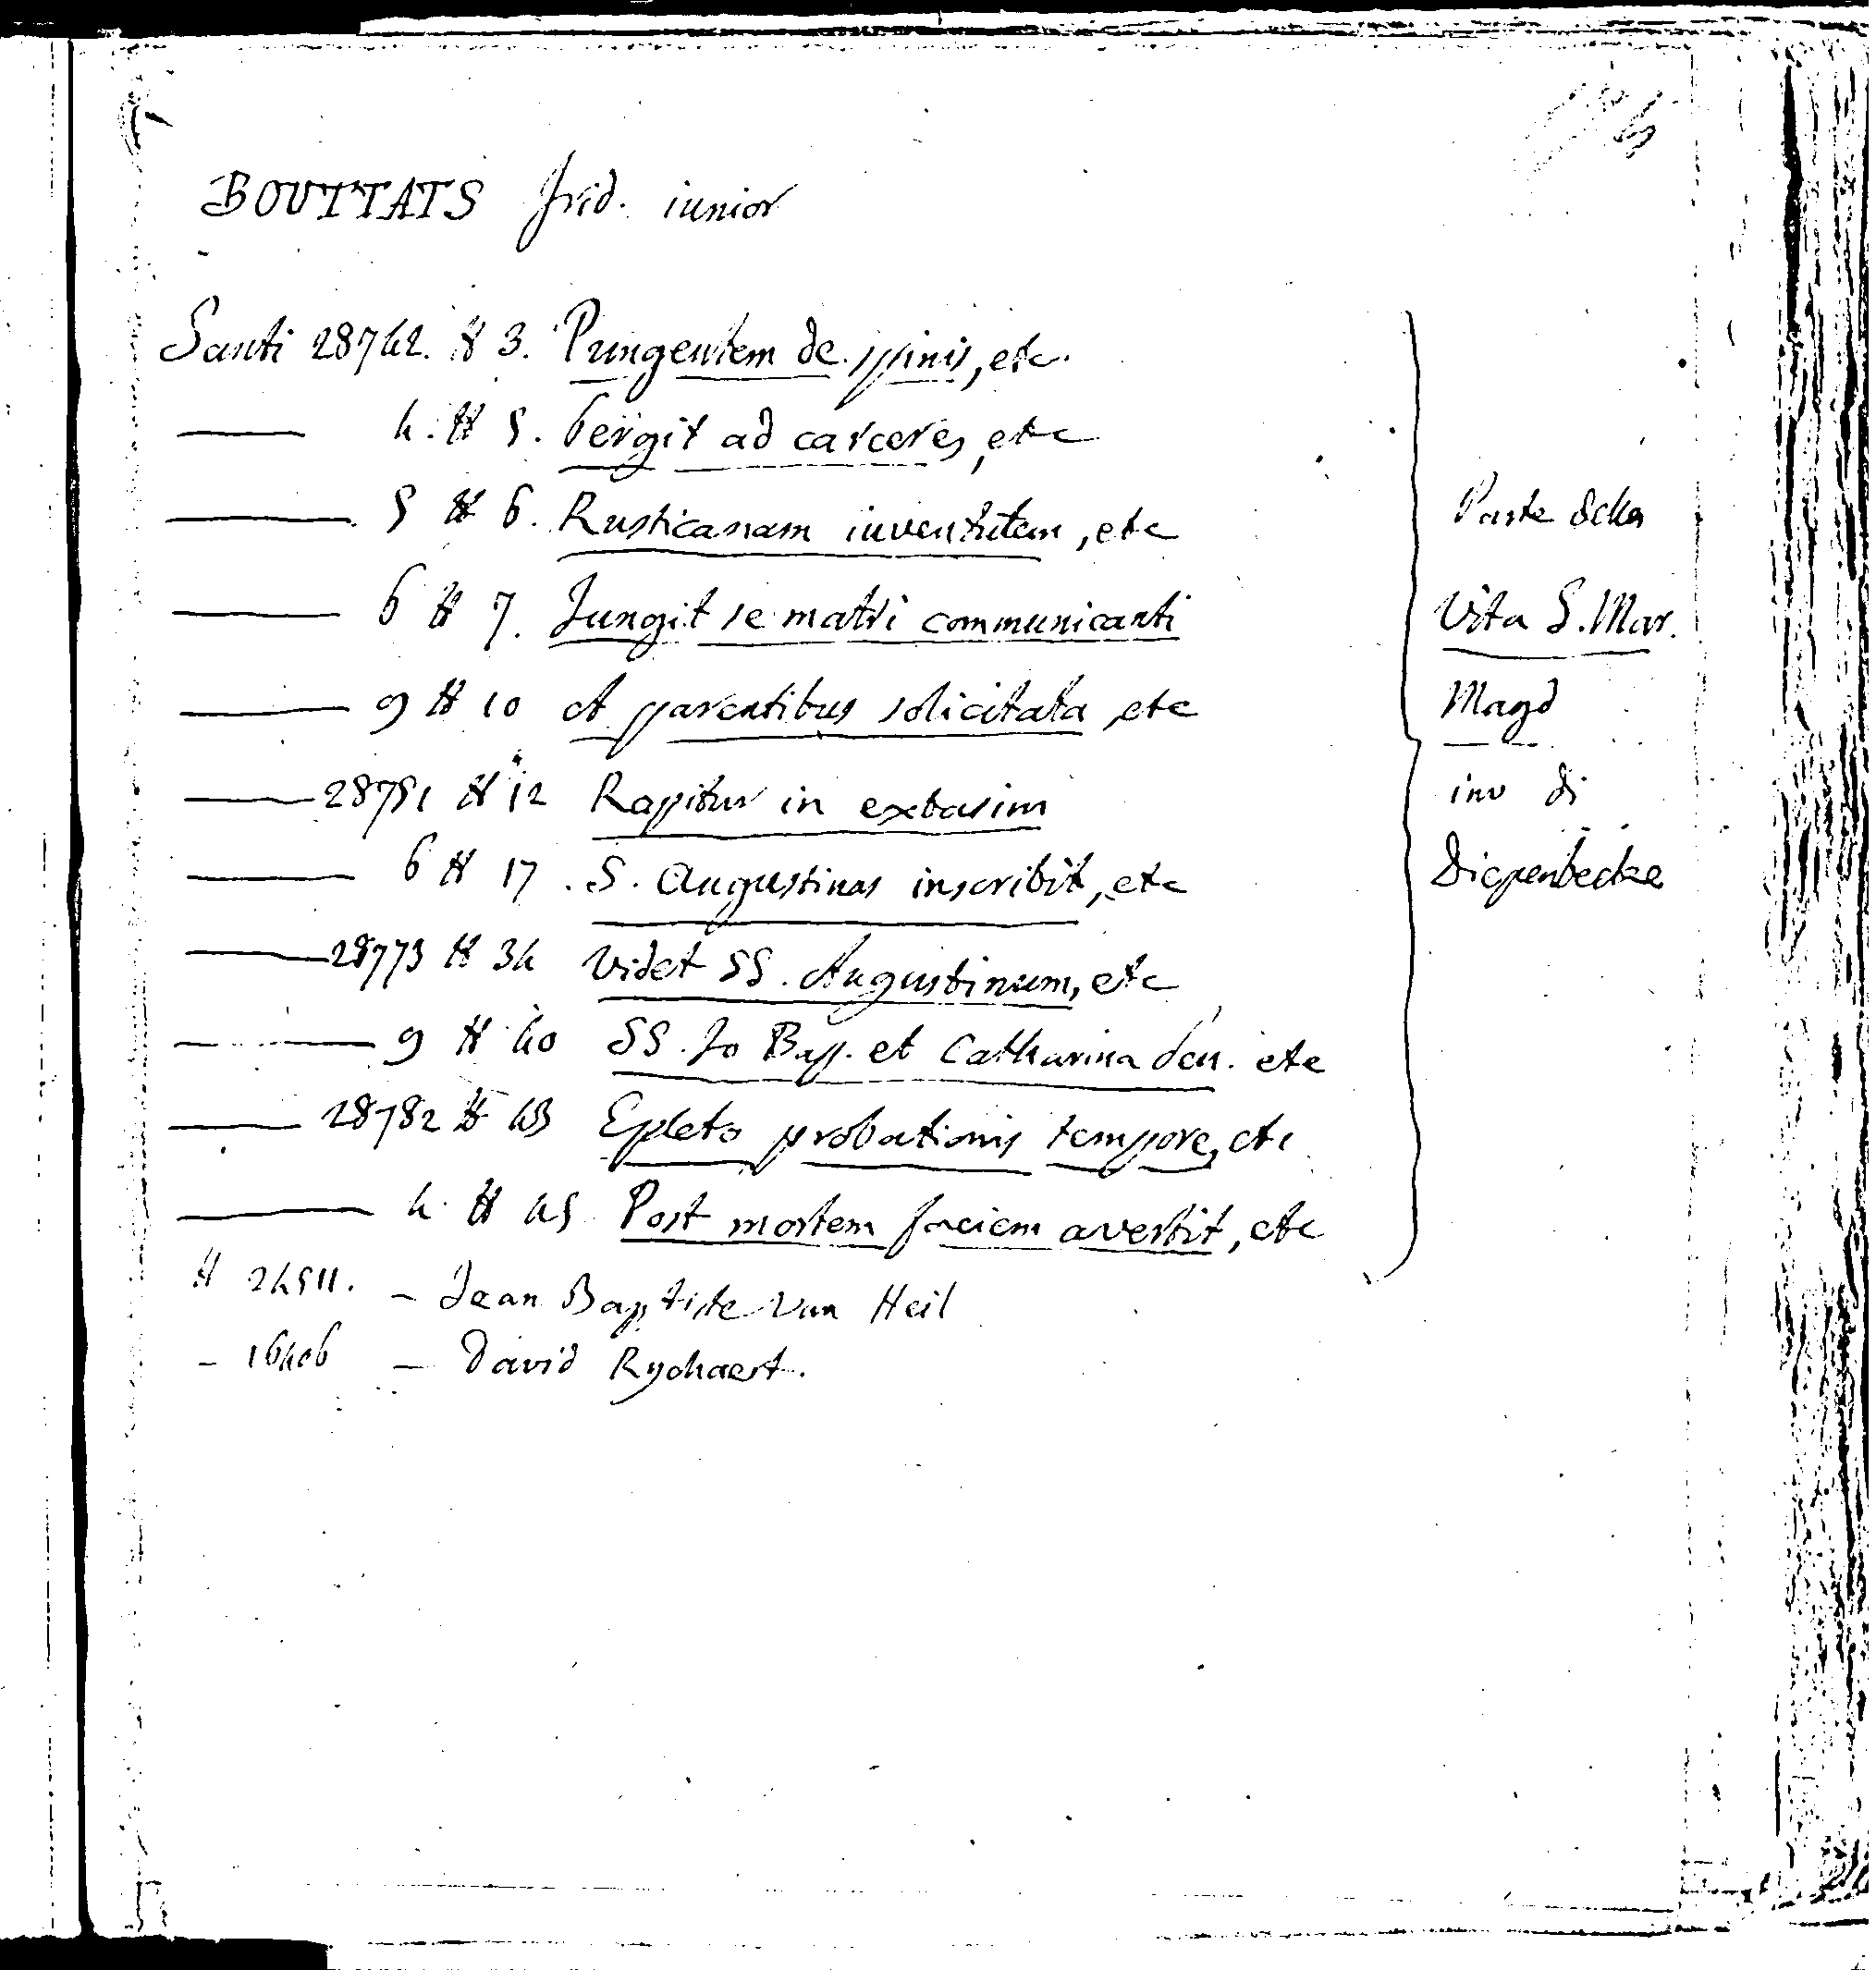 BOUTTATS frid. iunior
Santi 28742. # 3. Pungentem de spinis, etc.
—— 4. # 5. Pergit ad carceres, etc
—— 5 # 6. Rusticanam iuventutem, etc
—— 6 # 7. Jungit se matri communicanti
—— 9 # 10 A parentibus solicitata, etc
—— 28751 # 12 Rapitur in extasim
—— 6 # 17. S. Augustinas inscribit, etc
—— 28773 # 34 Videt SS. Augustinum, etc
—— 9 # 40 SS. Jo Bap. et Catharina Sen. etc
—— 28782 # 43 Epleto probationis tempore, etc
—— 4. # 45 Post mortem faciem avertit, etc
Parte della
Vita S. Mar.
Magd
inv di
Diepenbecke
# 24511. – Jean Baptiste Van Heil
– 16406 – David Rychaert.